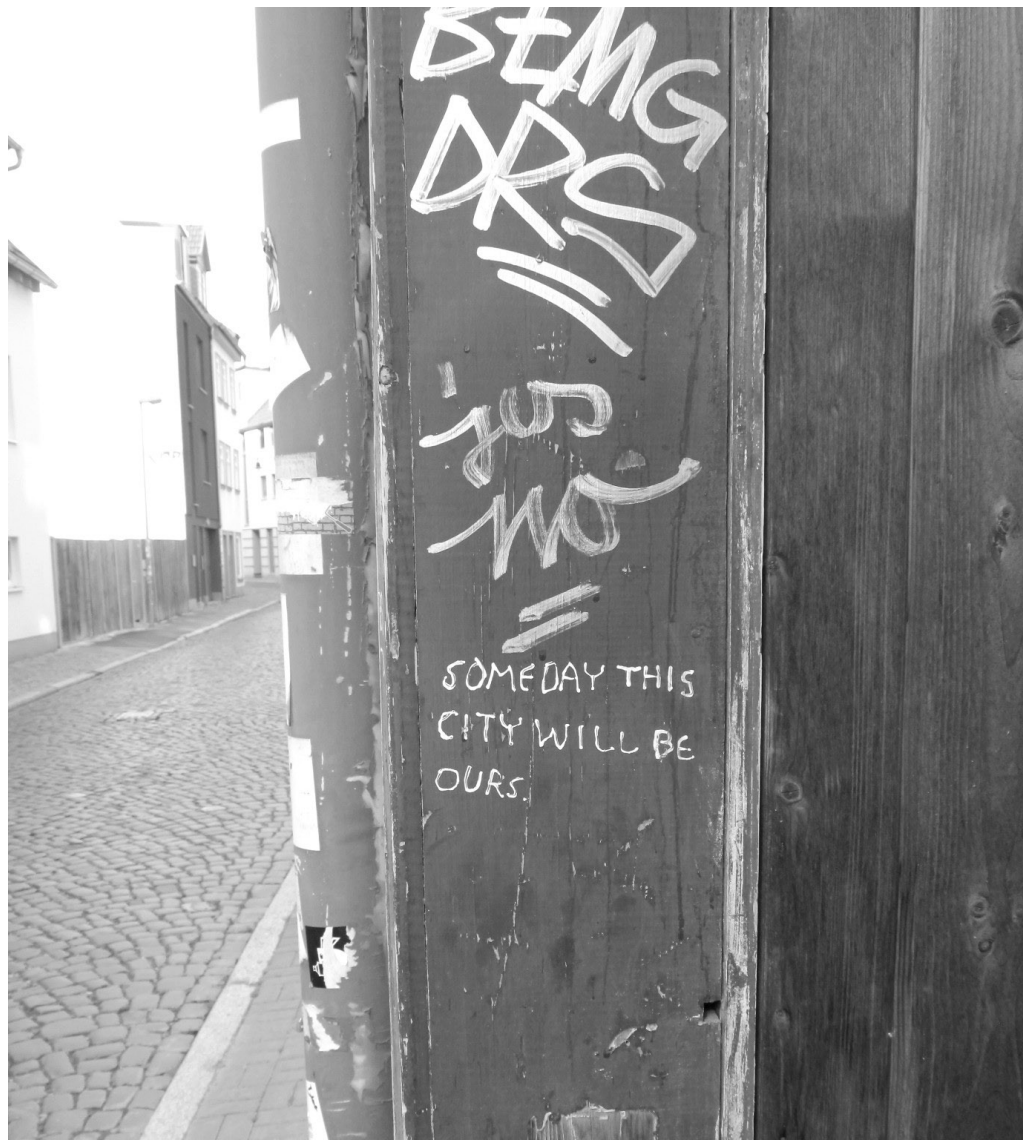 BEMG
DRS
jos
no
SOMEDAY THIS
CITY WILL BE
OURS.